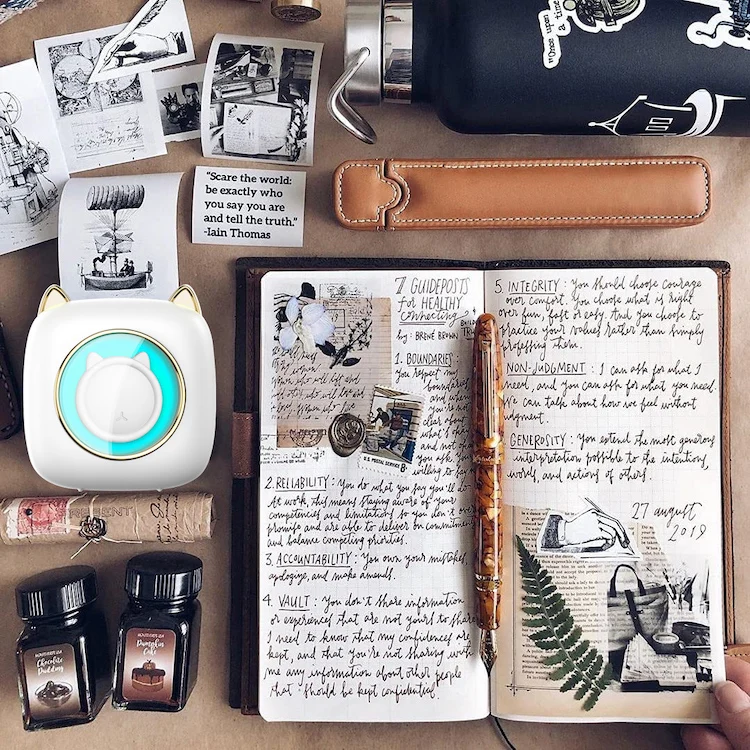 "Once upon
a time"
"Scare the world:
be exactly who
you say you are
and tell the truth."
-Iain Thomas
7 GUIDEPOSTS
for HEALTHY
Connecting
by: BRENÉ BROWN
1. BOUNDARIES:
You respect my
boundaries
and when
you're not
clear about
what's
and not
you
willing to
U.S. POSTAL SERVICE
2. RELIABILITY: You do what you say you'll do.
At work, this means staying aware of your
competencies and limitations so you don't over
promise and are able to deliver on commitments
and balance competing priorities.
3. ACCOUNTABILITY: You own your mistakes,
apologize, and make amends.
4. VAULT: You don't share information
or experiences that are not yours to share.
I need to know that my confidences are
kept, and that you're not sharing with
me any information about other people
that should be kept confidential.
5 INTEGRITY: You should choose courage
over comfort. You choose what is right
over fun, fast or easy. And you choose to
practice your values rather than simply
professing them.
NON-JUDGMENT: I can ask for what I
need, and you can ask for what you need.
We can talk about how we feel without
judgment.
GENEROSITY: You extend the most generous
interpretation possible to the intentions,
words, and actions of others.
27 august
2019
Chocolate
Pudding
Pumpkin
Cake